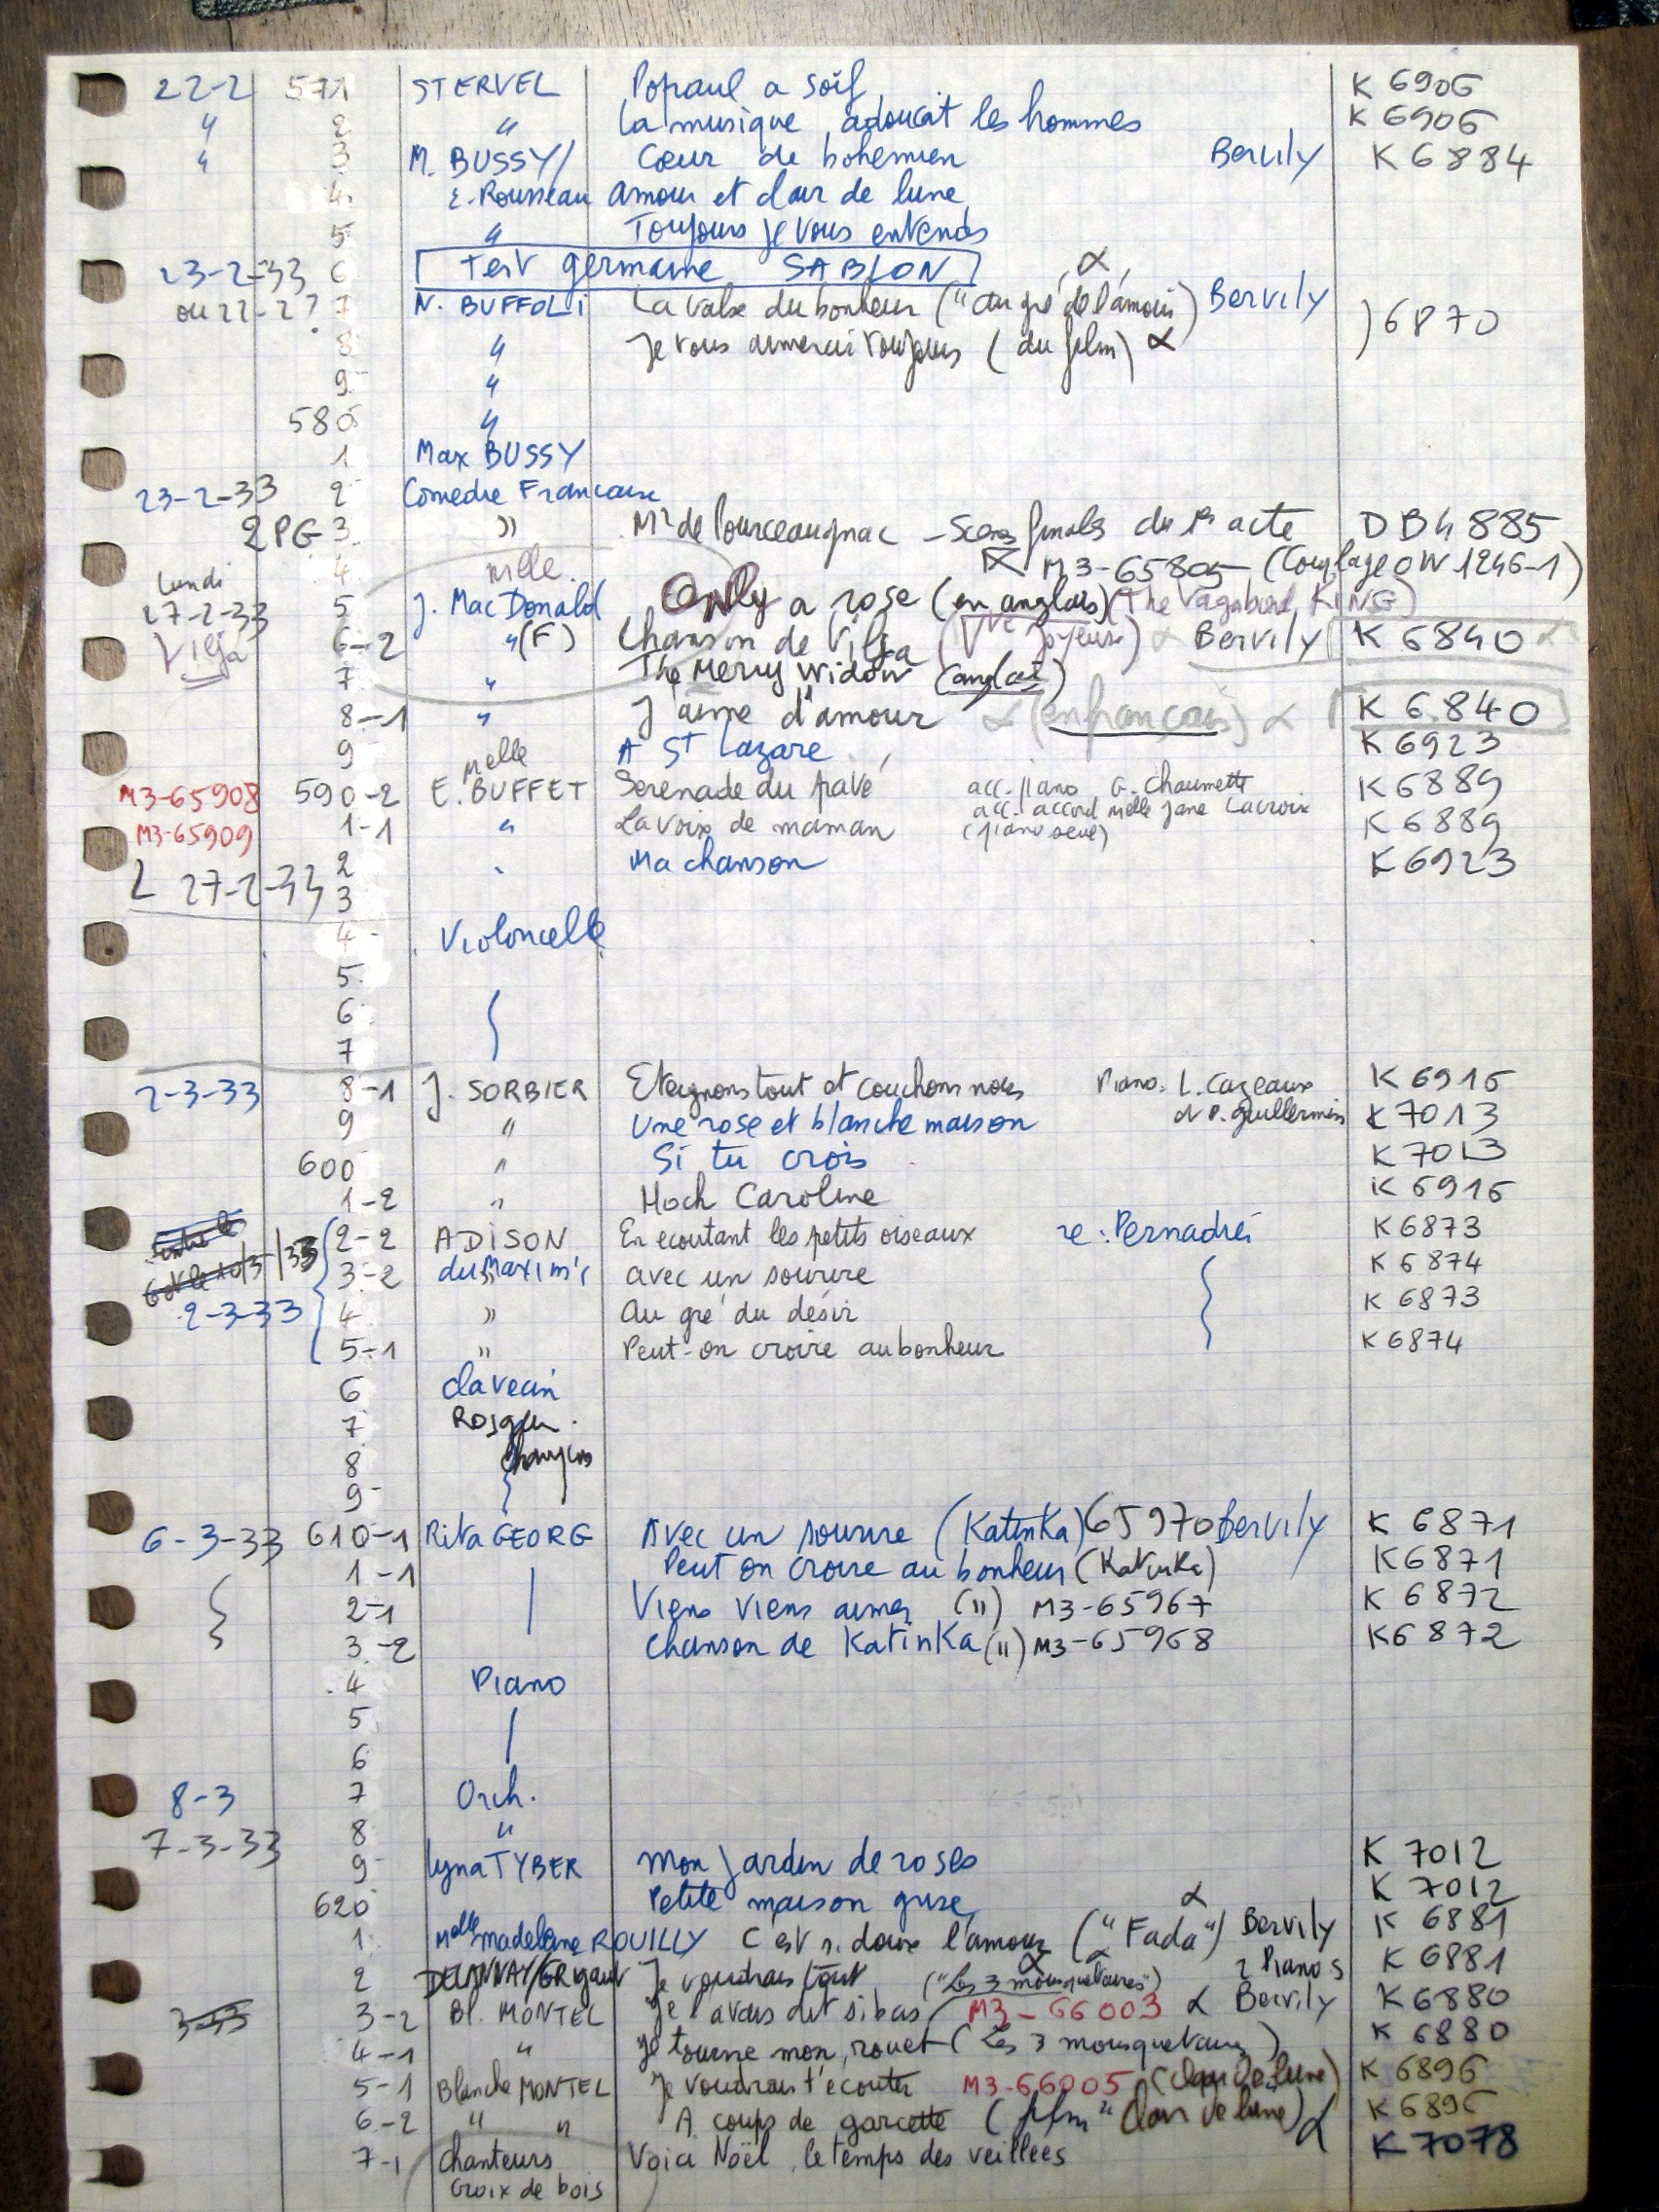 22-2 571 STERVEL Popaul a soif K 6906
" 2 " La musique adoucit les hommes K 6906
" 3 M. BUSSY/ Cœur de bohemien Bervily K 6884
4 E. Rousseau Amour et clair de lune
5 " Toujours je vous entends
23-2-33 6 Test germaine SABLON α
ou 22-2? 7 N. BUFFOLI La valse du bonheur ("au gré de l'amour) Bervily )6870
8 " Je vous aimerai toujours (du film) α
9 "
580 "
1 Max BUSSY
23-2-33 2 Comedie Francaise
2PG 3 " Mr de Pourceaugnac - Scenes finales du 1er acte DB4885
4 M3-65805 (Couplage OW1246-1)
Lundi melle
27-2-33 5 J. MacDonald Only a rose (en anglais) (The Vagabond KING)
Vilja 6-2 " (F) Chanson de Vilja (Vve joyeuse) α Bervily K 6840 α
7 " The Merry Widow (anglais)
8-1 " J'aime d'amour α (en français) α K 6840
9 A St Lazare K 6923
melle
M3-65908 590-2 E. BUFFET Serenade du pavé acc. piano G. Chaumette K 6889
M3-65909 1-1 " La voix de maman acc. accord melle Jane Lacroix (piano seul) K 6889
2 Ma chanson K 6923
L 27-2-33 3
4 Violoncelle
5
6
7
2-3-33 8-1 J. SORBIER Eteignons tout et couchons nous Piano: L. Cazeaux K 6916
9 " Une rose et blanche maison et P. Guillermin K 7013
600 " Si tu crois K 7013
1-2 " Hoch Caroline K 6916
2-2 ADISON En ecoutant les petits oiseaux re: Pernadréi K 6873
3-2 du Maxim's avec un sourire K 6874
2-3-33 4 " Au gré du désir K 6873
5-1 " Peut-on croire au bonheur K 6874
6 clavecin
7
8
9
6-3-33 610-1 Rita GEORG Avec un sourire (Katinka) 65970 Bervily K 6871
1-1 Peut on croire au bonheur (Katinka) K6871
2-1 Viens viens aimer (") M3-65967 K 6872
3-2 Chanson de Katinka (") M3-65968 K6872
4 Piano
5
6
8-3 7 Orch.
7-3-33 8 "
9 Lyna TYBER Mon jardin de roses K 7012
620 Petite maison grise K 7012
1 Melle Madeleine ROUILLY C'est si doux l'amour ("Fada") α Bervily K 6881
2 DELANNAY/GRigaut Je voudrais tout α 2 Pianos K 6881
("Les 3 mousquetaires")
3-2 Bl. MONTEL Je l'avais dit si bas M3-66003 α Bervily K 6880
4-1 " Je tourne mon rouet (Les 3 mousquetaires) K 6880
5-1 Blanche MONTEL Je voudrais t'ecouter M3-66005 (clair de lune) K 6896
6-2 " " A coups de garcette (film "clair de lune) α K 6896
7-1 chanteurs Voici Noël, le temps des veillees K 7078
croix de bois